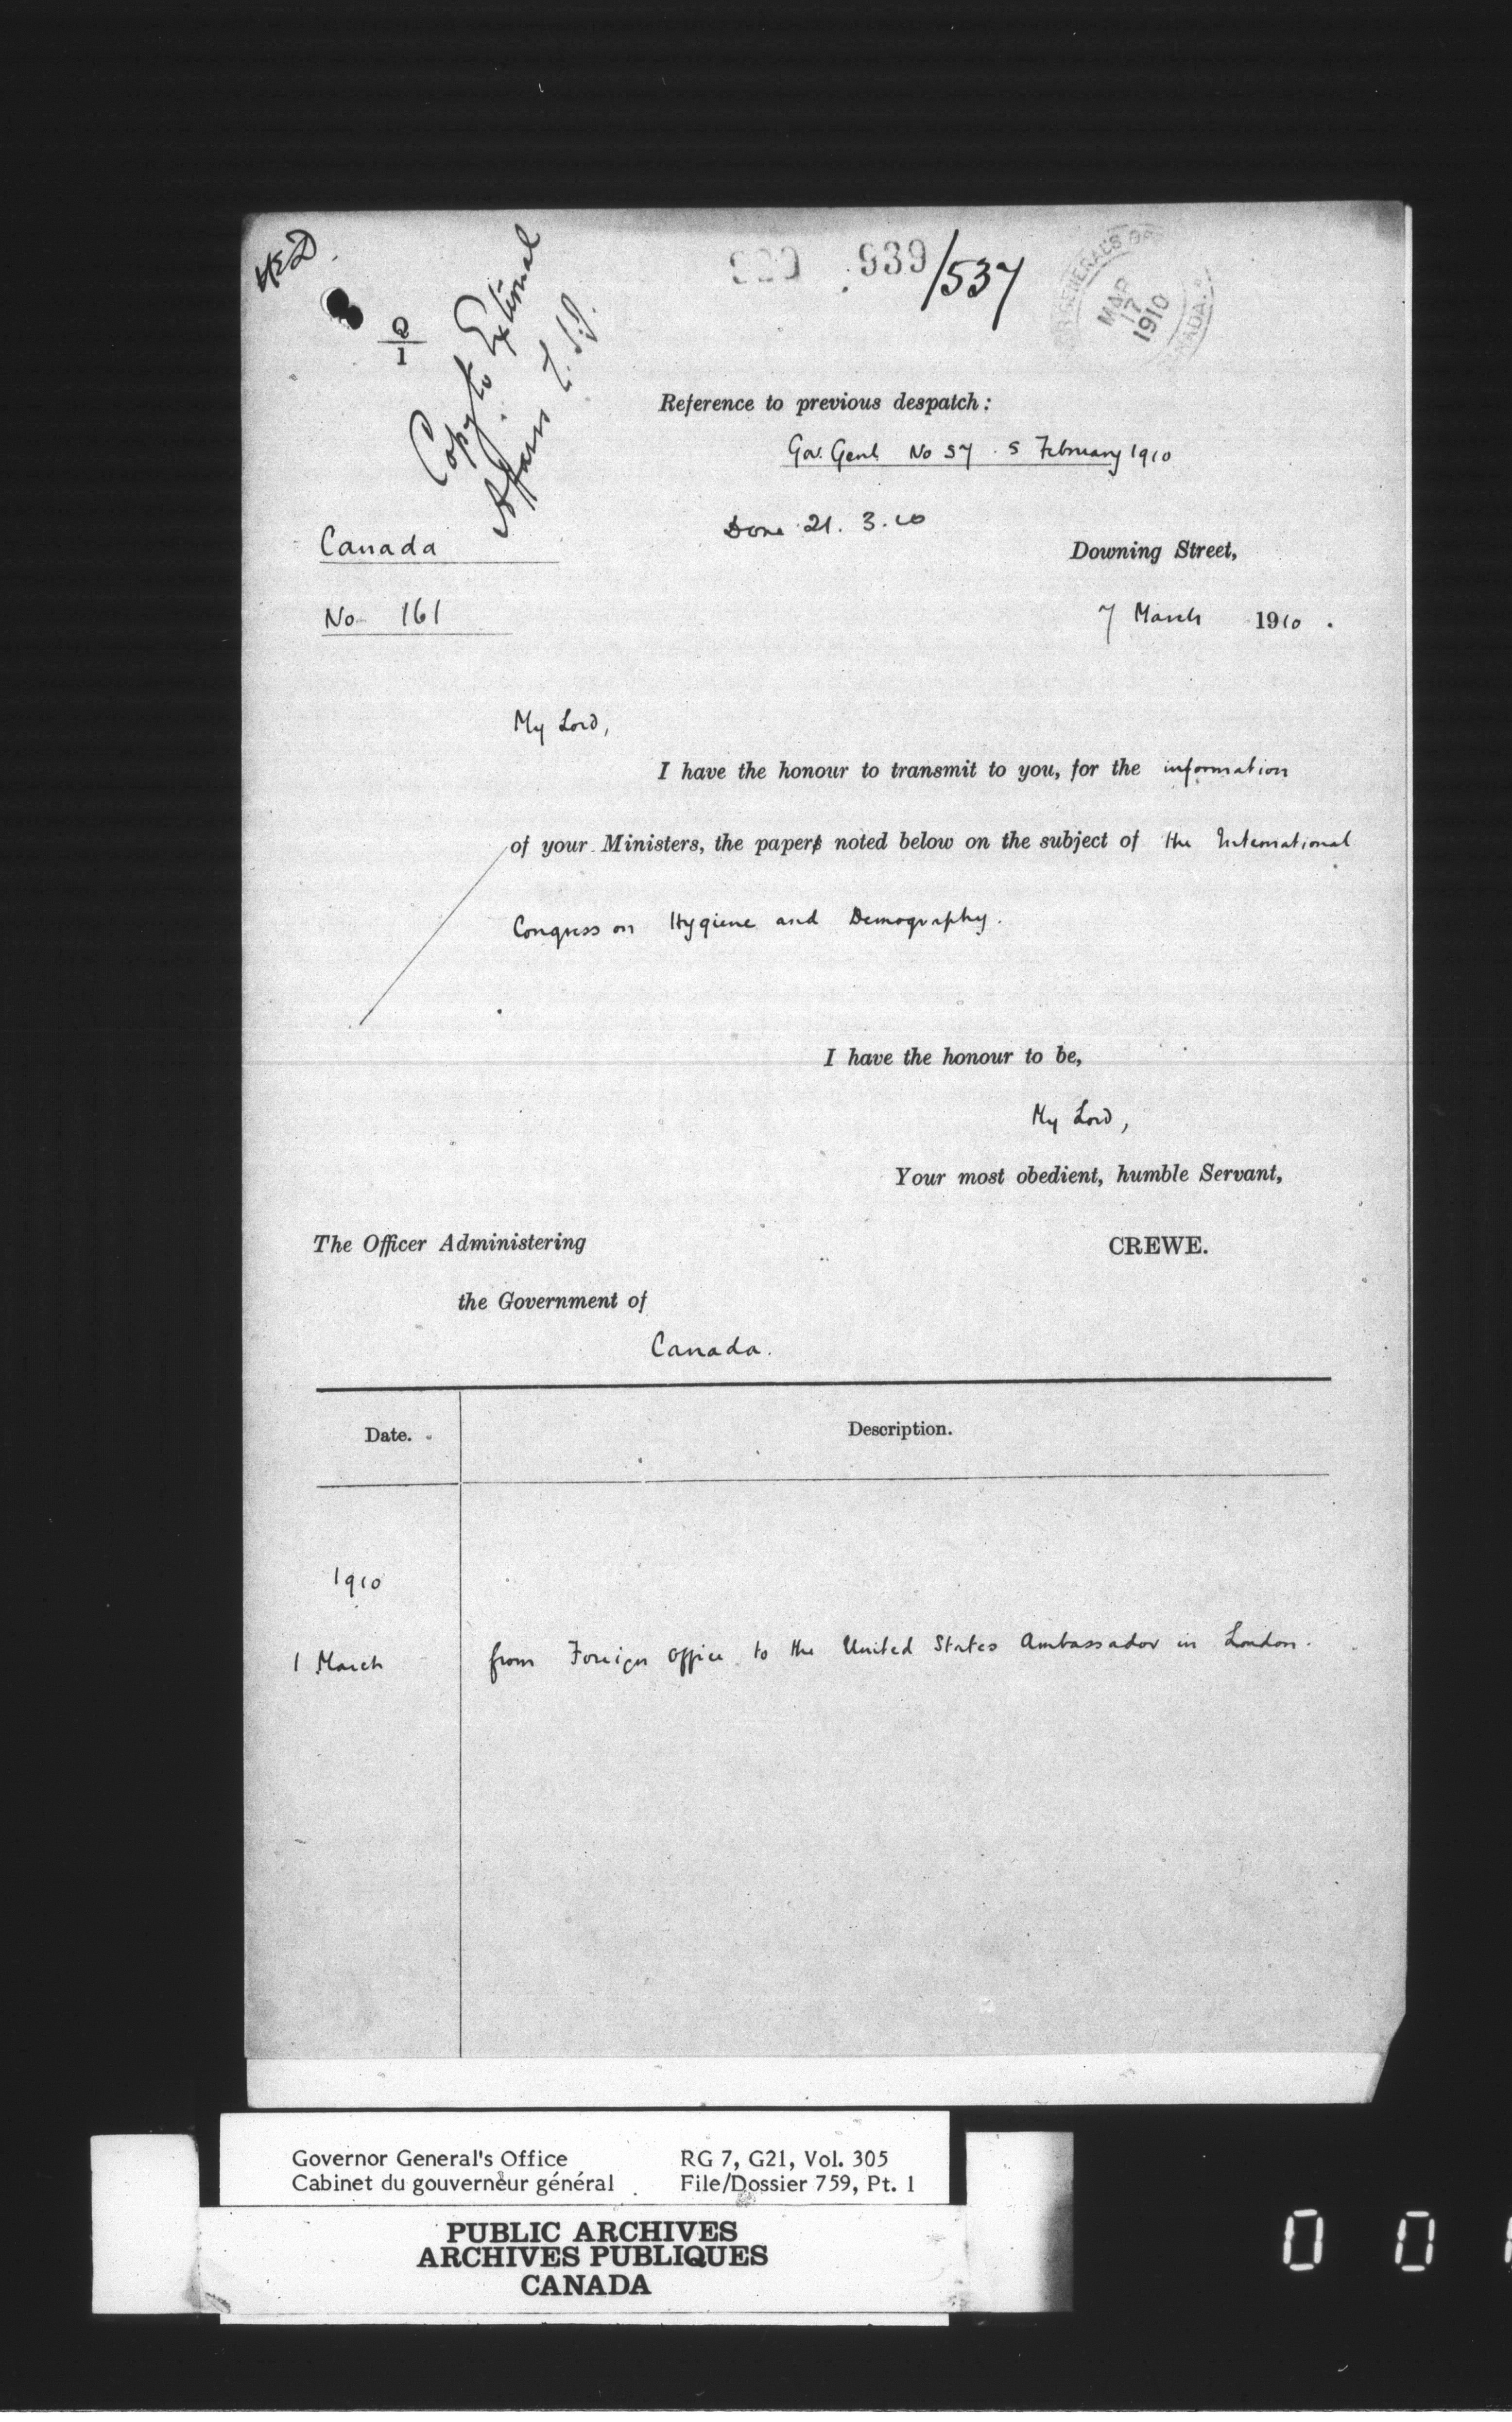 HED.
939/537
MAR
17
1910
Q
1
Copy to External
Affairs
Reference to previous despatch:
Gov. Genl. No 57. 5 February 1910
Done 21. 3. 10
Canada
Downing Street,
No 161
7 March 1910.
My Lord,
I have the honour to transmit to you, for the information
of your Ministers, the paper noted below on the subject of the International
Congress on Hygiene and Demography.
I have the honour to be,
My Lord,
Your most obedient, humble Servant,
The Officer Administering
CREWE.
the Government of
Canada.
Date.
Description.
1910
1 March
from Foreign Office to the United States Ambassador in London.
Governor General's Office RG 7, G21, Vol. 305
Cabinet du gouverneur général File/Dossier 759, Pt. 1
PUBLIC ARCHIVES
ARCHIVES PUBLIQUES
CANADA
0 0